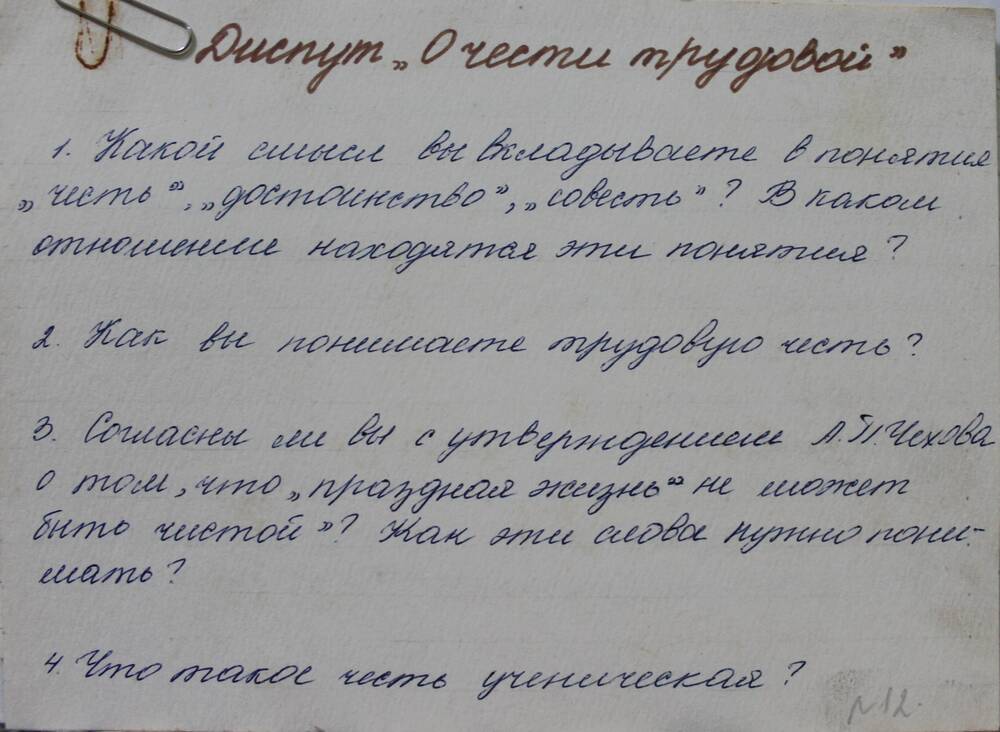 Диспут „О чести трудовой"
1. Какой смысл вы вкладываете в понятия
„честь", „достоинство", „совесть"? В каком
отношении находятся эти понятия?
2. Как вы понимаете трудовую честь?
3. Согласны ли вы с утверждением А.П.Чехова
о том, что „праздная жизнь" не может
быть чистой"? Как эти слова нужно пони-
мать?
4. Что такое честь ученическая?
№12.